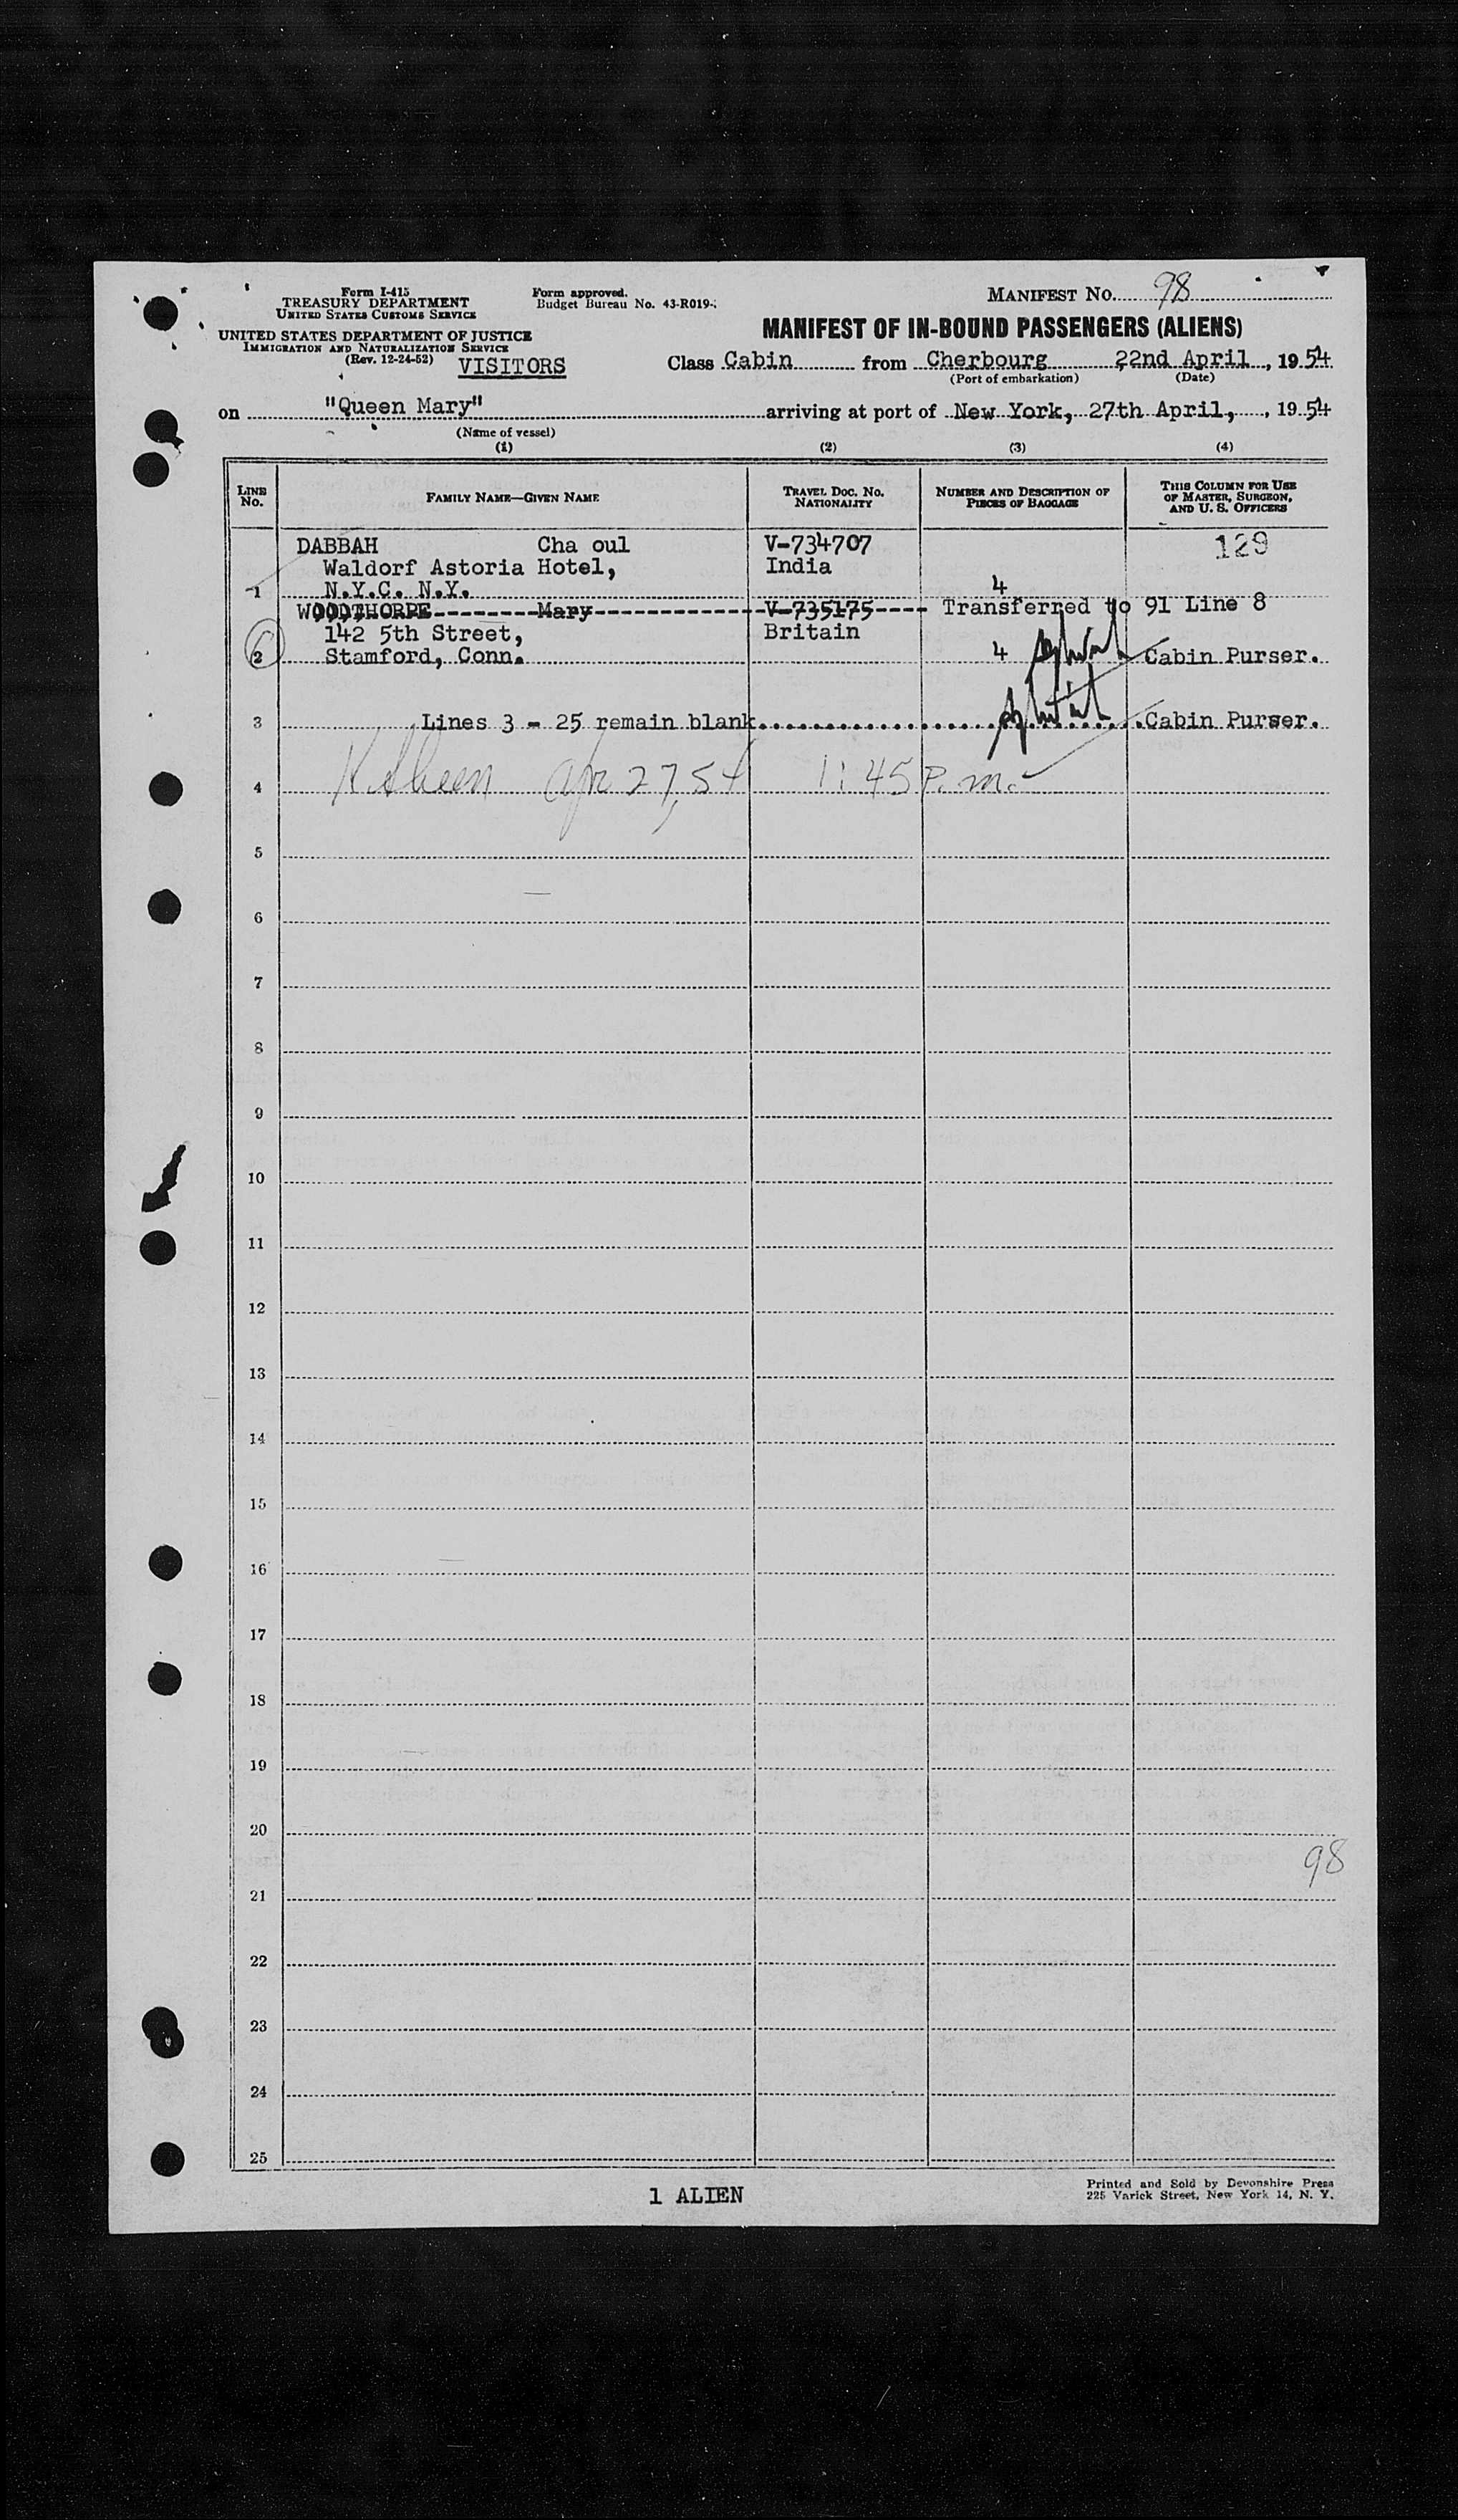 Form I-415
TREASURY DEPARTMENT
UNITED STATES CUSTOMS SERVICE
Form approved.
Budget Bureau No. 43-R019-
MANIFEST No. 98
UNITED STATES DEPARTMENT OF JUSTICE
IMMIGRATION AND NATURALIZATION SERVICE
(Rev. 12-24-52) VISITORS
MANIFEST OF IN-BOUND PASSENGERS (ALIENS)
Class Cabin from Cherbourg, 22nd April, 1954
(Port of embarkation) (Date)
on "Queen Mary" arriving at port of New York, 27th April, 1954
(Name of vessel)
(1) (2) (3) (4)
LINE No. FAMILY NAME—GIVEN NAME TRAVEL DOC. NO. NATIONALITY NUMBER AND DESCRIPTION OF PIECES OF BAGGAGE THIS COLUMN FOR USE OF MASTER, SURGEON, AND U. S. OFFICERS
DABBAH Cha oul V-734707 129
Waldorf Astoria Hotel, India
1 N.Y.C. N.Y. 4
WOODTHORPE Mary V-735175 Transferred to 91 Line 8
142 5th Street, Britain
2 Stamford, Conn. 4 Cabin Purser.
3 Lines 3 - 25 remain blank Cabin Purser.
4 Apr 27, 54 11:45 P.m.
5
6
7
8
9
10
11
12
13
14
15
16
17
18
19
20
98
21
22
23
24
25
1 ALIEN
Printed and Sold by Devonshire Press
225 Varick Street, New York 14, N. Y.